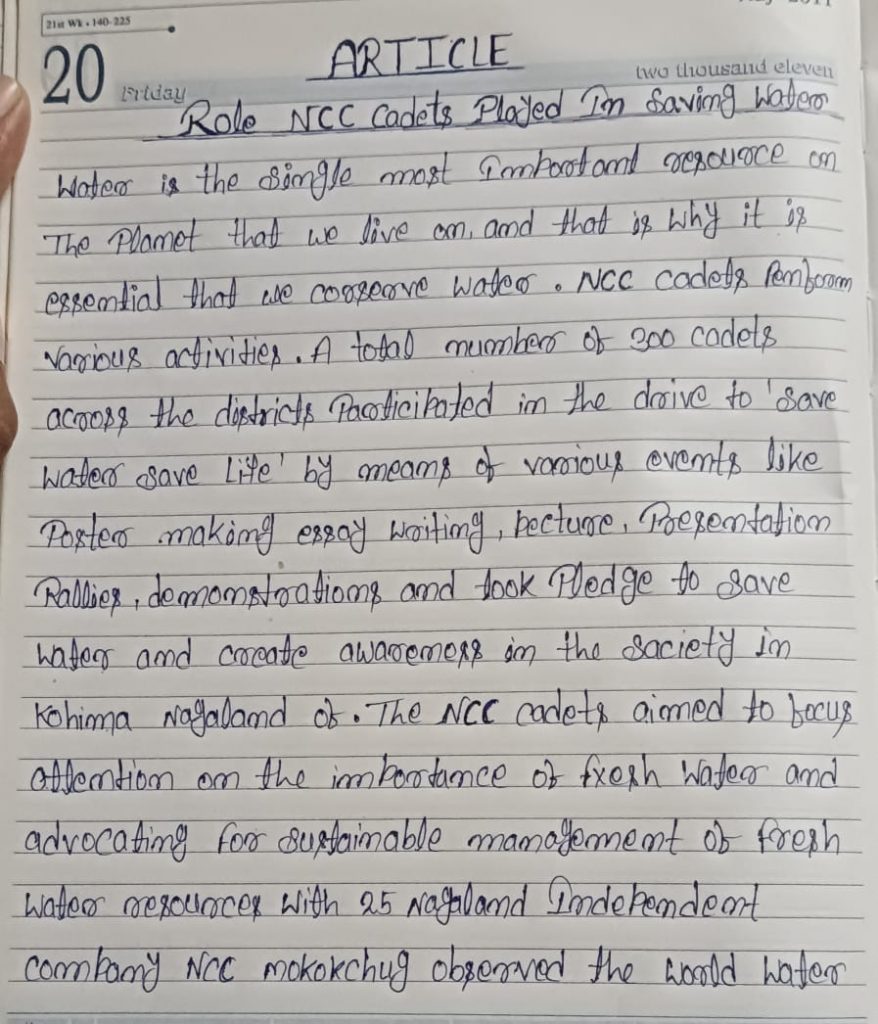 21st Wk • 140-225
ARTICLE
20 Friday
two thousand eleven
Role NCC Cadets Played In Saving Water
Water is the single most Important resource on
The Planet that we live on, and that is why it is
essential that we conserve water. NCC cadets Perform
various activities. A total number of 300 cadets
across the districts Participated in the drive to 'save
water save Life' by means of various events like
Poster making essay writing, Lecture, Presentation
Rallies, demonstrations and took Pledge to save
water and create awareness in the Saciety in
Kohima Nagaland of. The NCC cadets aimed to focus
attention on the importance of fresh Water and
advocating for sustainable management of fresh
water resources with 25 Nagaland Independent
company NCC mokokchug observed the world water